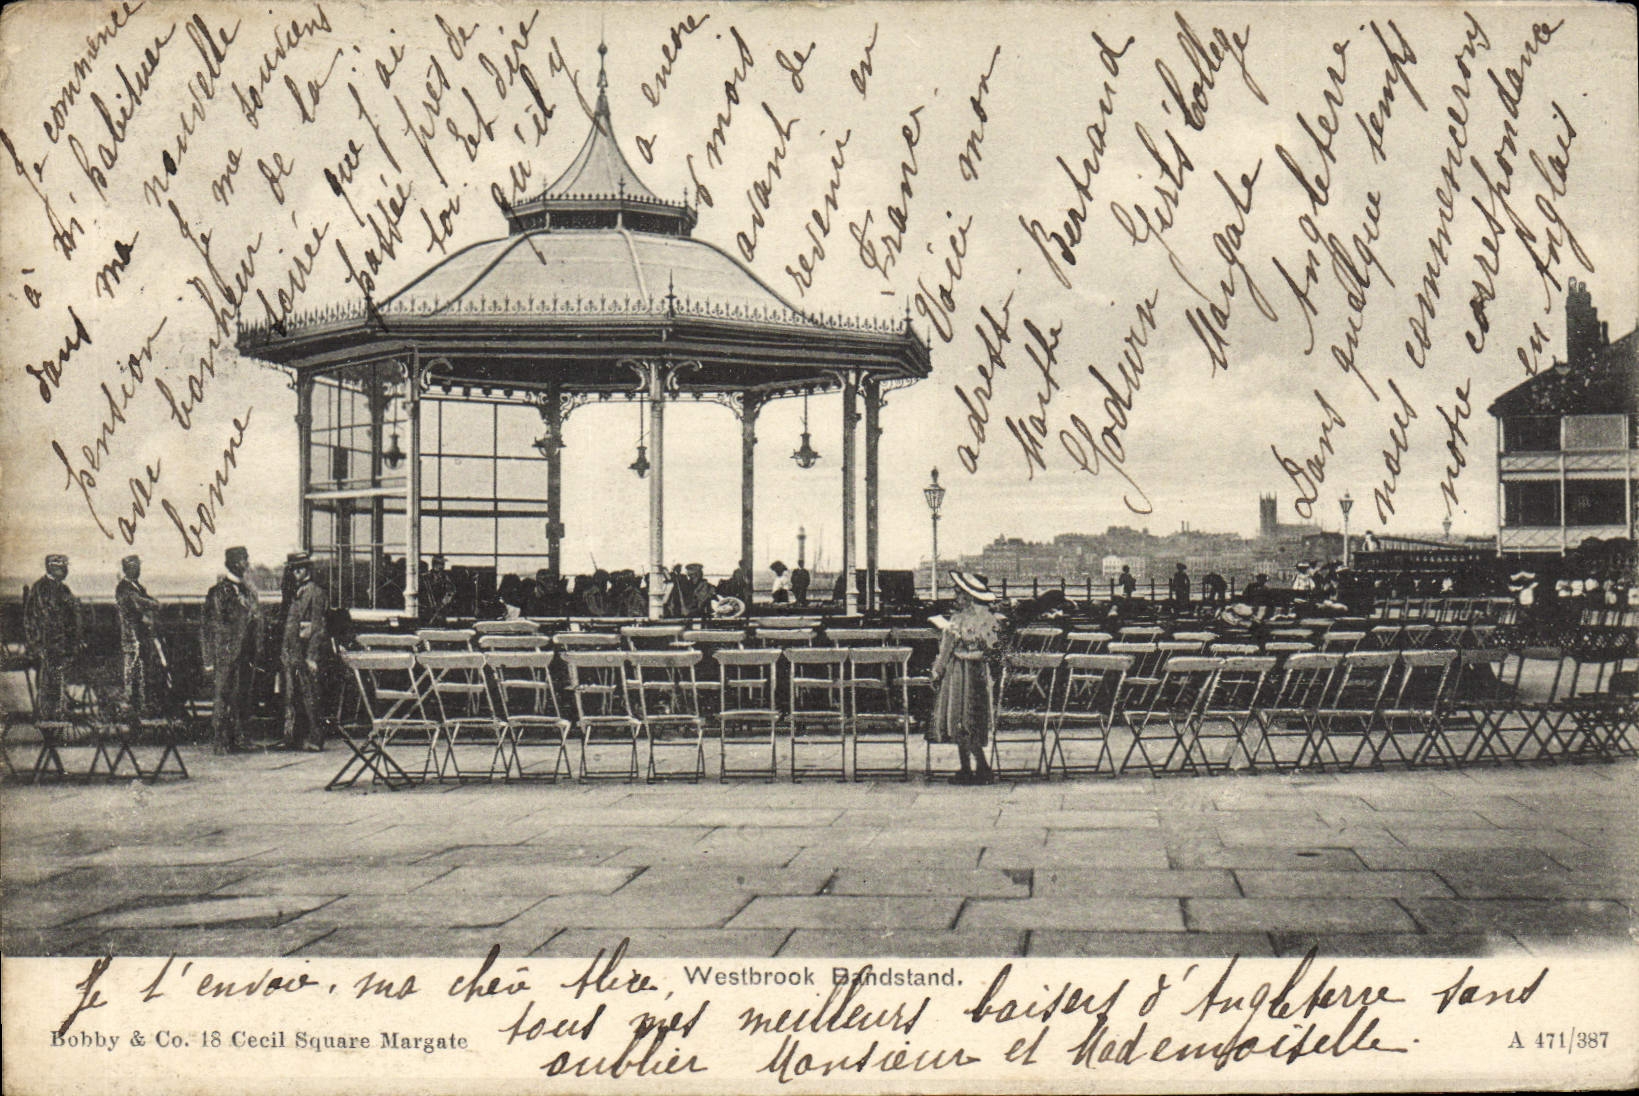 Je commence
à m'habituer
dans ma nouvelle
pension Je me souviens
avec bonheur de la
bonne soirée que j'ai
passée près de
toi. Et dire
qu'il y
a encore
mois
avant de
revenir en
France.
Voici mon
adresse.
Marthe Bertrand
Godwin Girls' College
Margate
Angleterre
Dans quelque temps
nous commencerons
notre correspondance
en Anglais
Je t'envoie, ma chère Alice,
Westbrook Bandstand.
tous mes meilleurs baisers d'Angleterre sans
oublier Monsieur et Mademoiselle.
Bobby & Co. 18 Cecil Square Margate
A 471/387